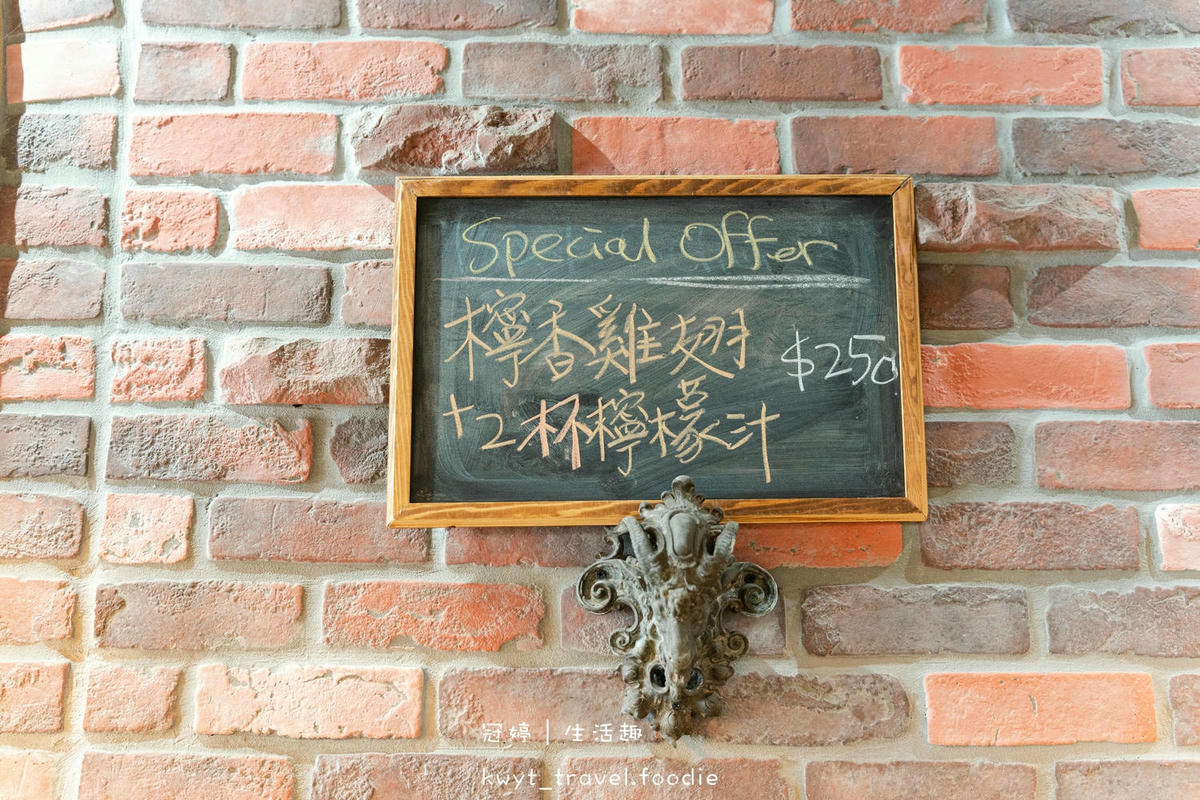 Special Offer
檸香雞翅 $250
+2杯檸檬汁
冠婷｜生活趣
kwyt_travel.foodie